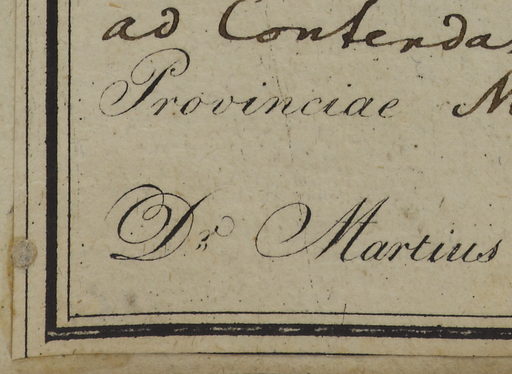 ad Contenda
Provinciae
Dr. Martius